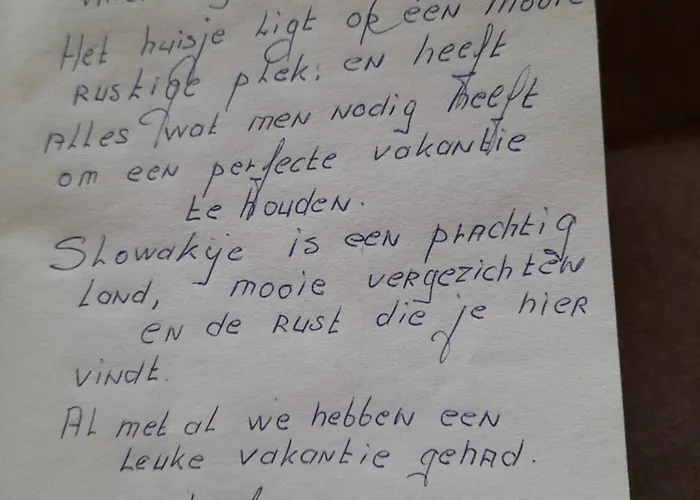 Het huisje ligt op een mooie
rustige plek; en heeft
Alles wat men nodig heeft
om een perfecte vakantie
te houden.
Slowakije is een prachtig
land, mooie vergezichten
en de rust die je hier
vindt.
Al met al we hebben een
leuke vakantie gehad.